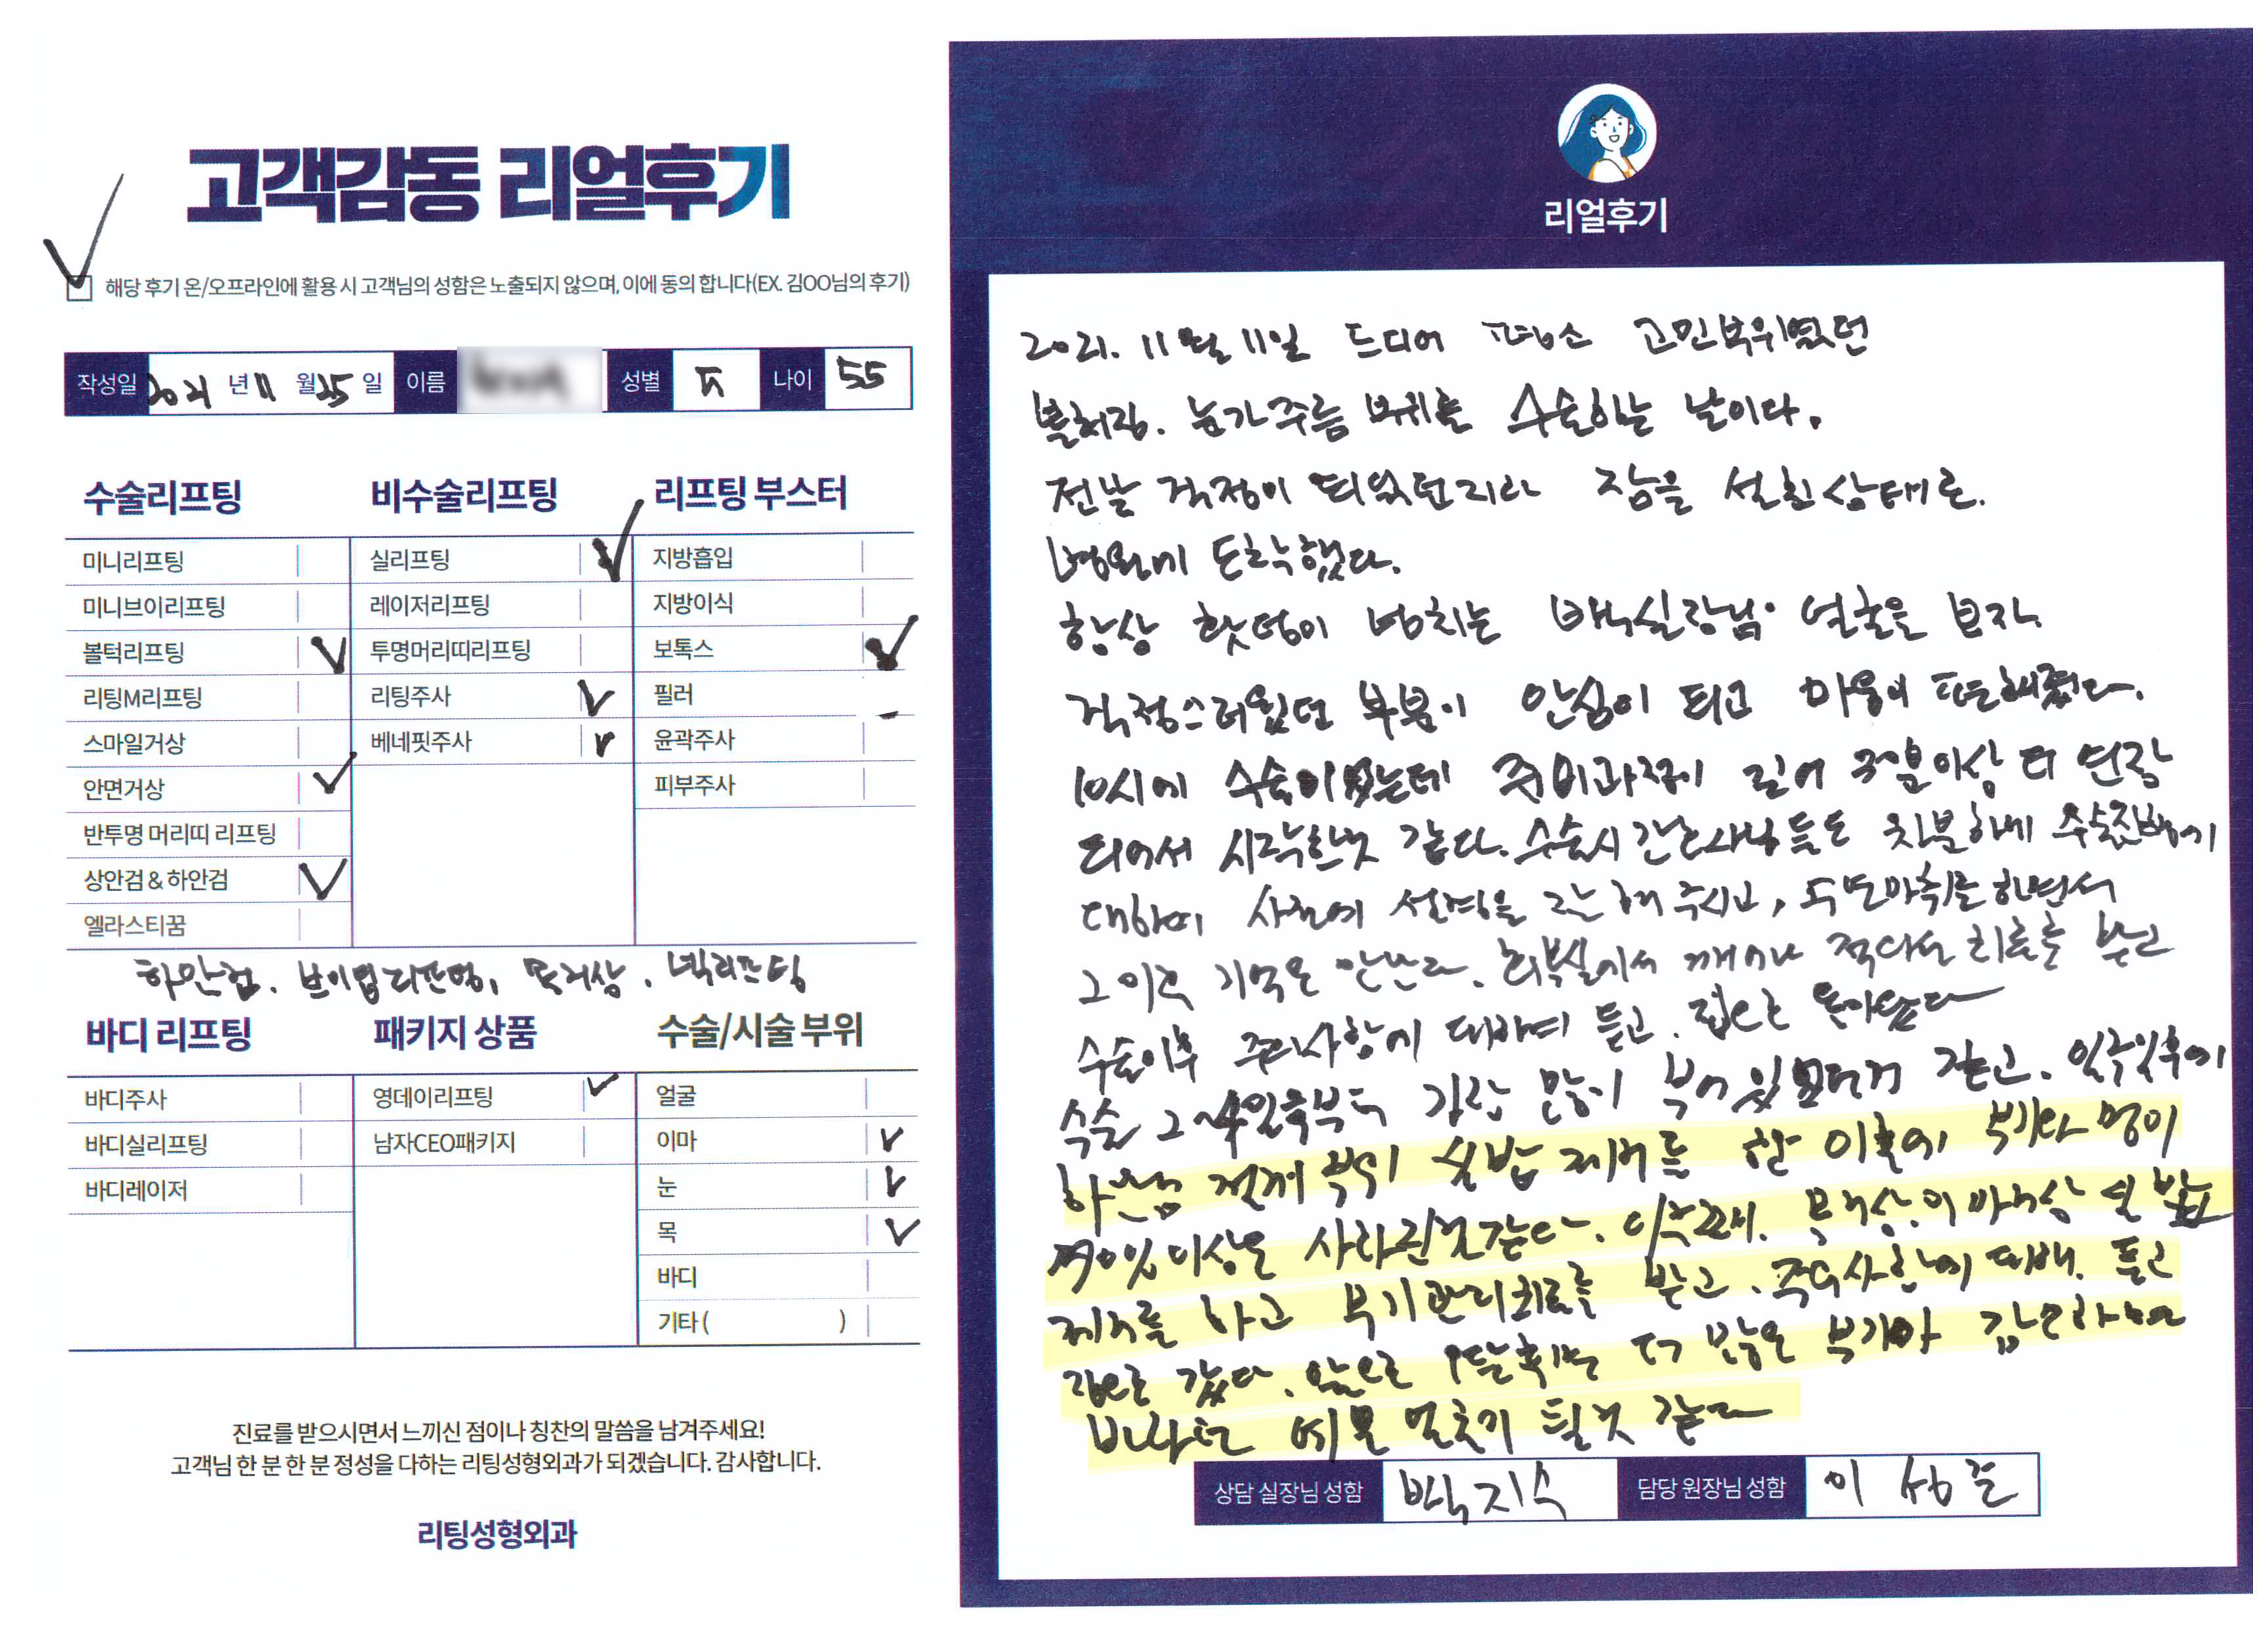 고객감동 리얼후기
해당 후기 온/오프라인에 활용 시 고객님의 성함은 노출되지 않으며, 이에 동의 합니다(EX. 김OO님의 후기)
작성일 2021 년 11 월 25 일 이름 성별 여 나이 55
수술리프팅 비수술리프팅 리프팅 부스터
미니리프팅 실리프팅 지방흡입
미니브이리프팅 레이저리프팅 지방이식
볼턱리프팅 투명머리띠리프팅 보톡스
리팅M리프팅 리팅주사 필러
스마일거상 베네핏주사 윤곽주사
안면거상 피부주사
반투명 머리띠 리프팅
상안검 & 하안검
엘라스티꿈
하안검. 브이업리프팅, 목거상. 넥리프팅
바디 리프팅 패키지 상품 수술/시술 부위
바디주사 영데이리프팅 얼굴
바디실리프팅 남자CEO패키지 이마
바디레이저 눈
목
바디
기타 ( )
진료를 받으시면서 느끼신 점이나 칭찬의 말씀을 남겨주세요!
고객님 한 분 한 분 정성을 다하는 리팅성형외과가 되겠습니다. 감사합니다.
리팅성형외과
리얼후기
2021. 11월 11일 드디어 평소 고민부위였던
볼처짐. 눈가주름 부위를 수술하는 날이다.
전날 걱정이 되었던지라 잠을 설친상태로.
병원에 도착했다.
항상 핫덩이 넘치는 백실장님 얼굴을 보자
걱정스러웠던 부분이 안심이 되고 마음이 편해졌다.
10시에 수술이었는데 준비과정이 길어 30분이상 더 연장
되어서 시작한것 같다. 수술시 간호사님들도 차분하게 수술진행에
대하여 사전에 설명을 해 주시고, 수면마취를 하면서
그 이후 기억은 안난다. 회복실에서 깨어나 치료를 받고
수술이후 주의사항에 대하여 듣고. 집으로 돌아왔다
수술 2~4일후부터 가장 많이 부어 있었던거 같고. 일주일후에
하안검 절개 부위 실밥 제거를 한 이후에 부기와 멍이
90% 이상은 사라진것 같다. 이후 목거상. 이마거상 실밥
제거를 하고 부기관리치료를 받고. 주의사항에 대해 듣고
집으로 갔다. 앞으로 1달후면 더 많은 부기가 감소하
예쁜 얼굴이 될것 같다
상담 실장님 성함 백지수 담당 원장님 성함 이성준